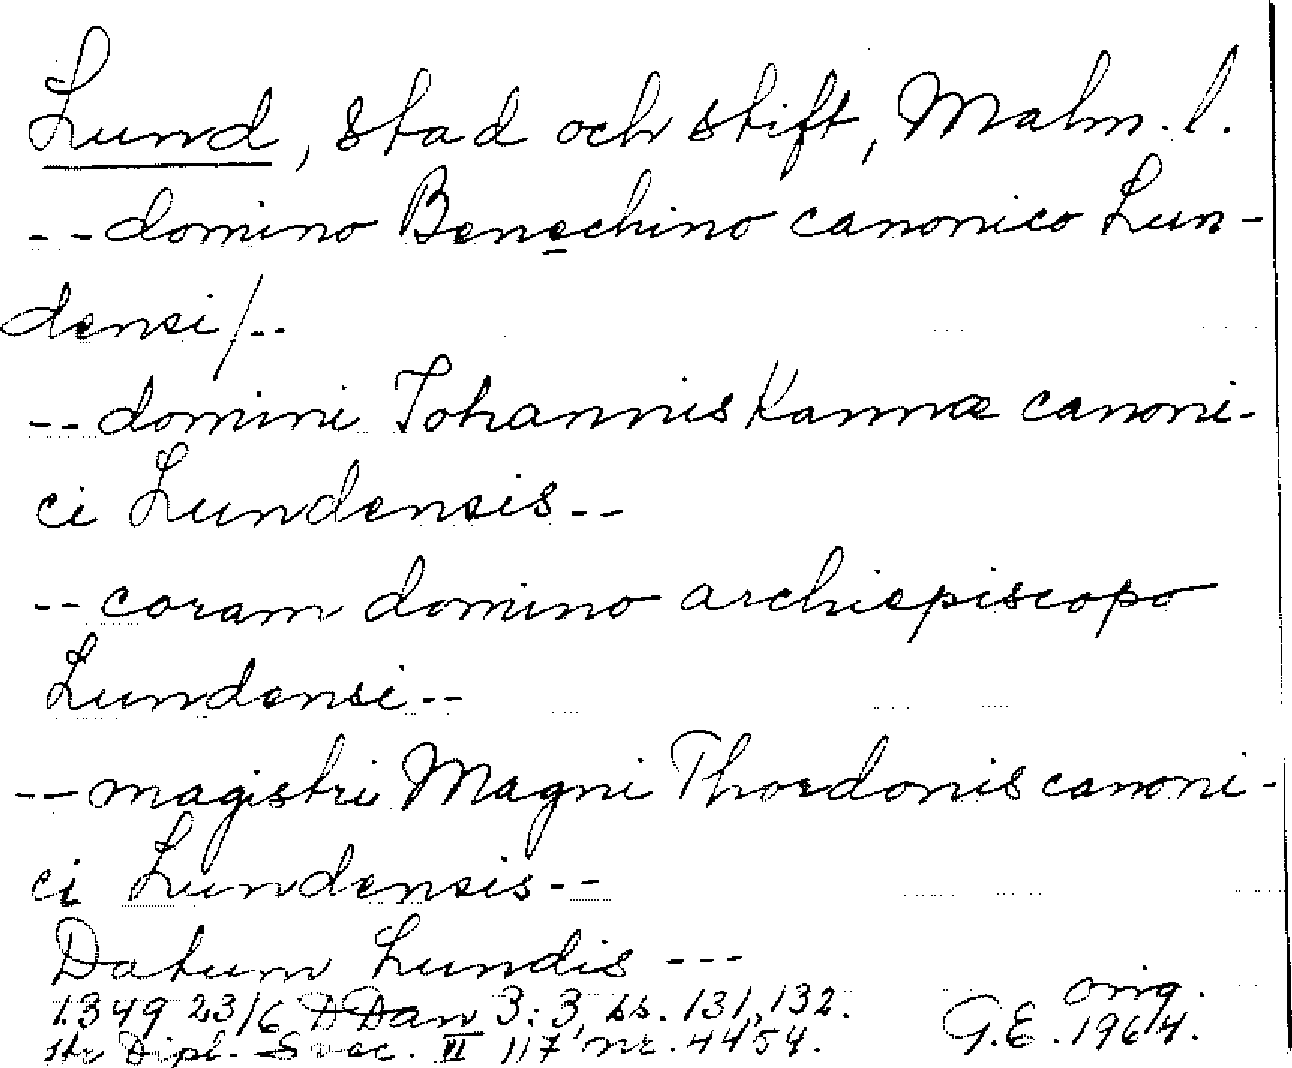 Lund, stad och stift, Malm. l.
-- domino Benechino canonico Lun-
densi/--
-- domini Johannis Kannæ canoni-
ci Lundensis --
-- coram domino archiepiscopo
Lundensi --
-- magistri Magni Thordonis canoni-
ci Lundensis --
Datum Lundis ---
1349 23/6 DDan 3:3, ss. 131, 132. orig.
Dipl. Svec. 117 nr. 4454. G.E. 1964.